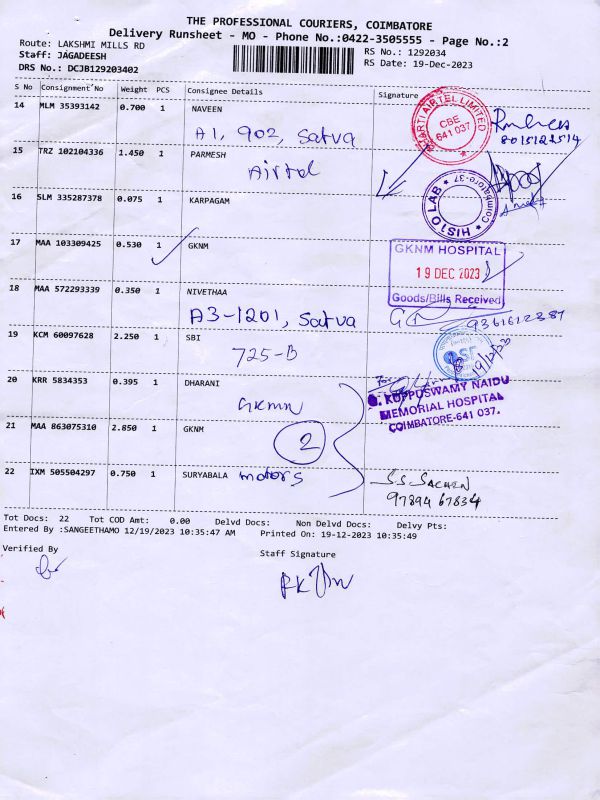 THE PROFESSIONAL COURIERS, COIMBATORE
Delivery Runsheet - MO - Phone No.:0422-3505555 - Page No.:2
Route: LAKSHMI MILLS RD
RS No.: 1292034
Staff: JAGADEESH
RS Date: 19-Dec-2023
DRS No.: DCJB129203402
S No Consignment No Weight PCS Consignee Details Signature
14 MLM 35393142 0.700 1 NAVEEN
A1, 902, Satva
BHARTI AIRTEL LIMITED
CBE
641 037
8015122514
15 TRZ 102104336 1.450 1 PARMESH
Airtel
16 SLM 335287378 0.075 1 KARPAGAM
HISTO LAB * Coimbatore-37 *
17 MAA 103309425 0.530 1 GKNM
GKNM HOSPITAL
19 DEC 2023
Goods/Bills Received
18 MAA 572293339 0.350 1 NIVETHAA
A3-1201, Satva
9361622387
19 KCM 60097628 2.250 1 SBI
725-B
19/12/23
20 KRR 5834353 0.395 1 DHARANI
GKMN
For
G. KUPPUSWAMY NAIDU
MEMORIAL HOSPITAL
COIMBATORE-641 037.
21 MAA 863075310 2.850 1 GKNM
2
22 IXM 505504297 0.750 1 SURYABALA motors
S.S. SACHIN
9789467834
Tot Docs: 22 Tot COD Amt: 0.00 Delvd Docs: Non Delvd Docs: Delvy Pts:
Entered By :SANGEETHAMO 12/19/2023 10:35:47 AM Printed On: 19-12-2023 10:35:49
Verified By
Staff Signature